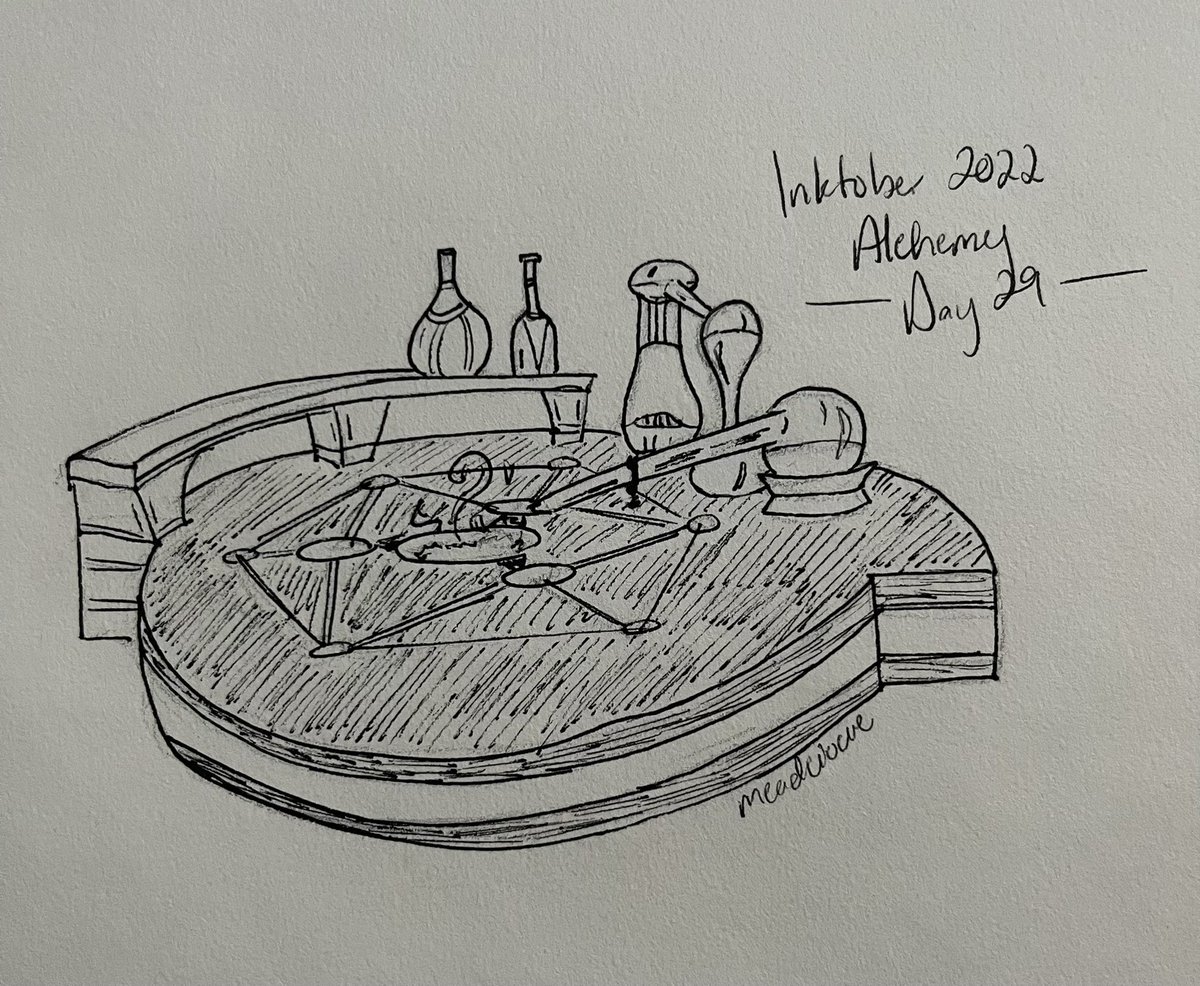 Inktober 2022
Alchemy
— Day 29 —